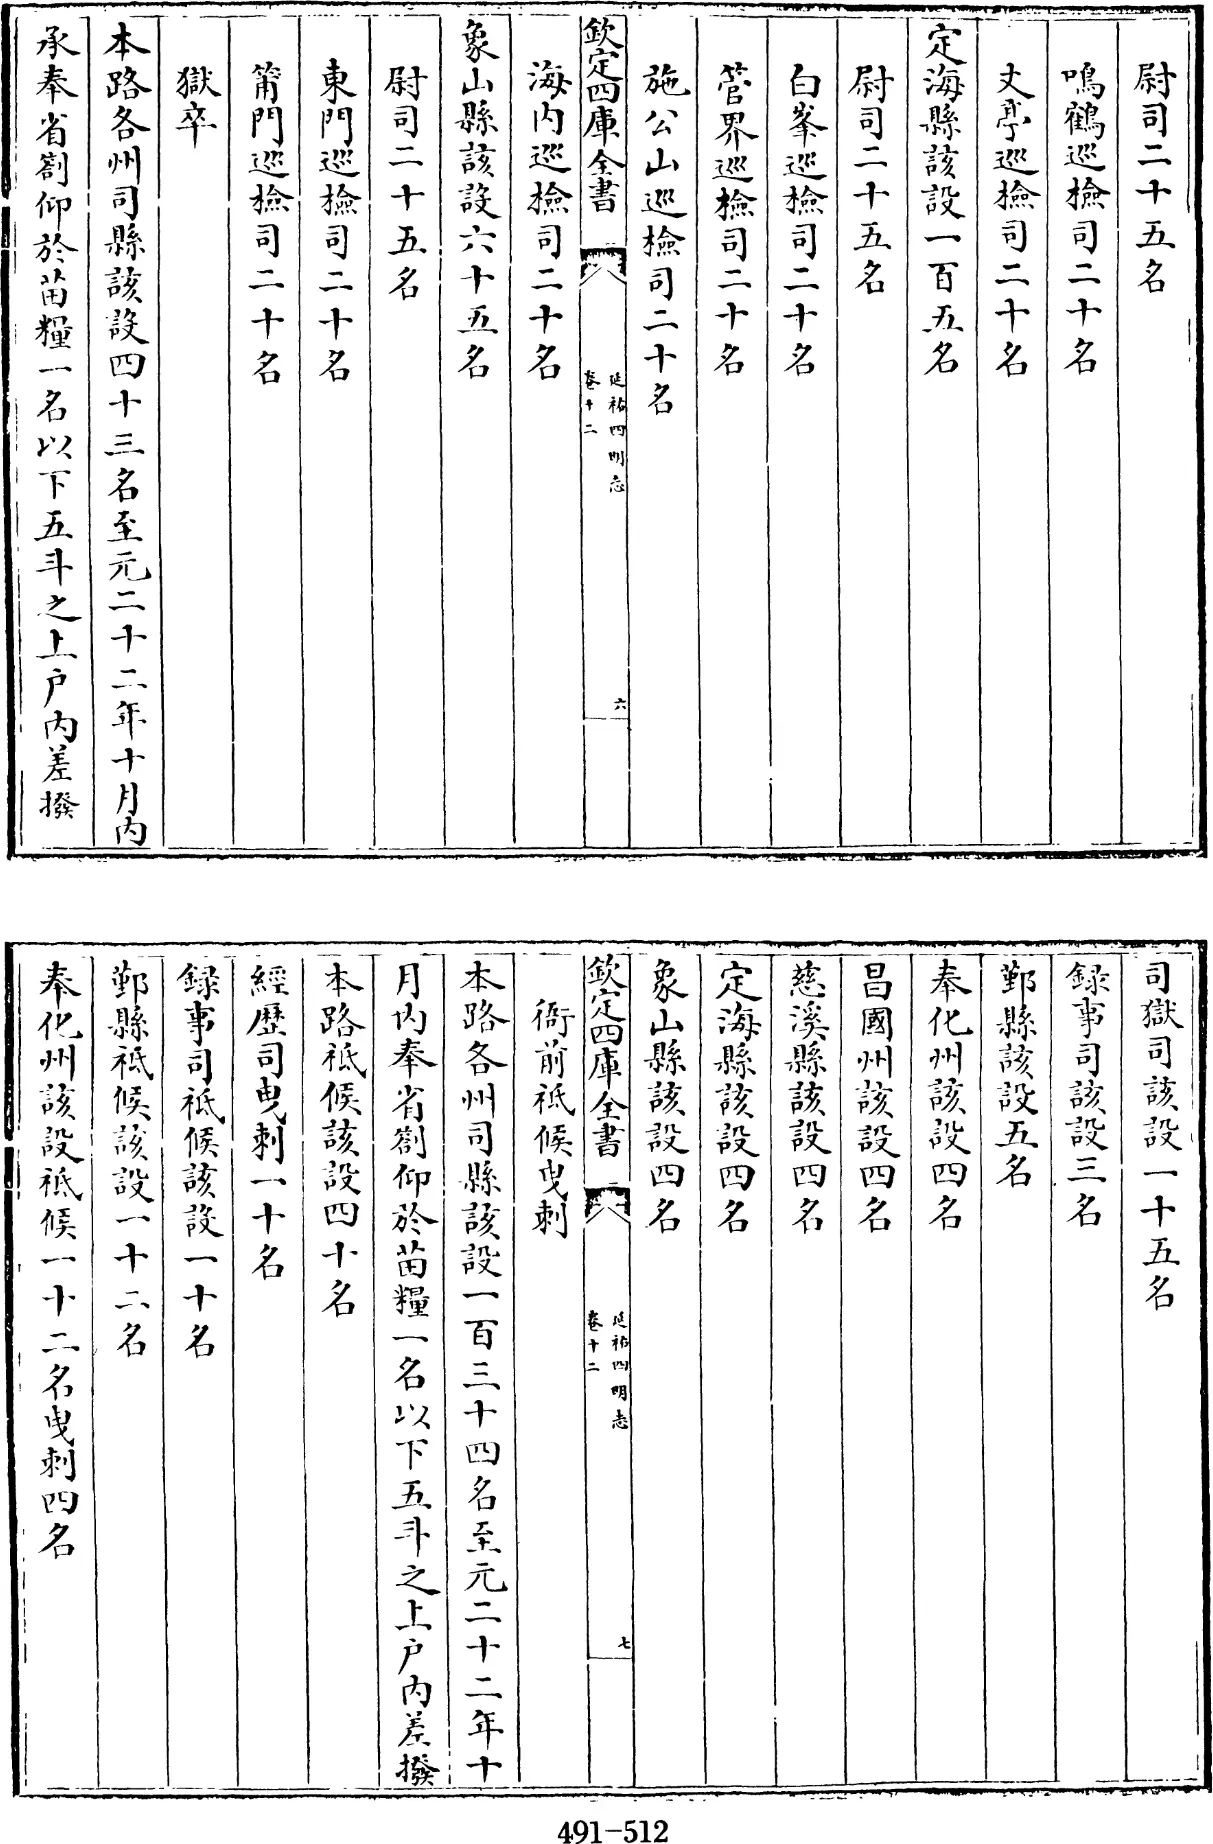 尉司二十五名
鳴鶴巡檢司二十名
丈亭巡檢司二十名
定海縣該設一百五名
尉司二十五名
白峯巡檢司二十名
管界巡檢司二十名
施公山巡檢司二十名
欽定四庫全書
延祐四明志
卷十二
六
海内巡檢司二十名
象山縣該設六十五名
尉司二十五名
東門巡檢司二十名
莆門巡檢司二十名
獄卒
本路各州司縣該設四十三名至元二十二年十月内
承奉省劄仰於苗糧一名以下五斗之上户内差撥
司獄司該設一十五名
録事司該設三名
鄞縣該設五名
奉化州該設四名
昌國州該設四名
慈溪縣該設四名
定海縣該設四名
象山縣該設四名
欽定四庫全書
延祐四明志
卷十二
七
衙前祗候曳剌
本路各州司縣該設一百三十四名至元二十二年十
月内奉省劄仰於苗糧一名以下五斗之上户内差撥
本路祗候該設四十名
經歷司曳剌一十名
録事司祗候該設一十名
鄞縣祗候該設一十二名
奉化州該設祗候一十二名曳剌四名
491-512